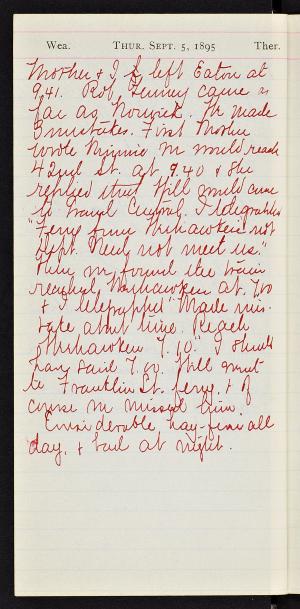 Wea. THUR. SEPT. 5, 1895 Ther.
Mother & I left Eaton at
9.41. Rob. Kenney came as
far as Norwich. We made
3 mistakes. First Mother
wrote Minnie we would reach
42nd St. at 9.40 & she
replied that Will would come
to Grand Central. I telegraphed
"Ferry from Wehawken not
Need not meet us."
Then we found the train
reached Weehawken at 7.00
& I telegraphed "Made mis-
take about time. Reach
Wehawken 7.10". I should
have said 7.00. Will went
to Franklin St. ferry, & of
course we missed him.
Considerable hay-fever all
day, & bad at night.